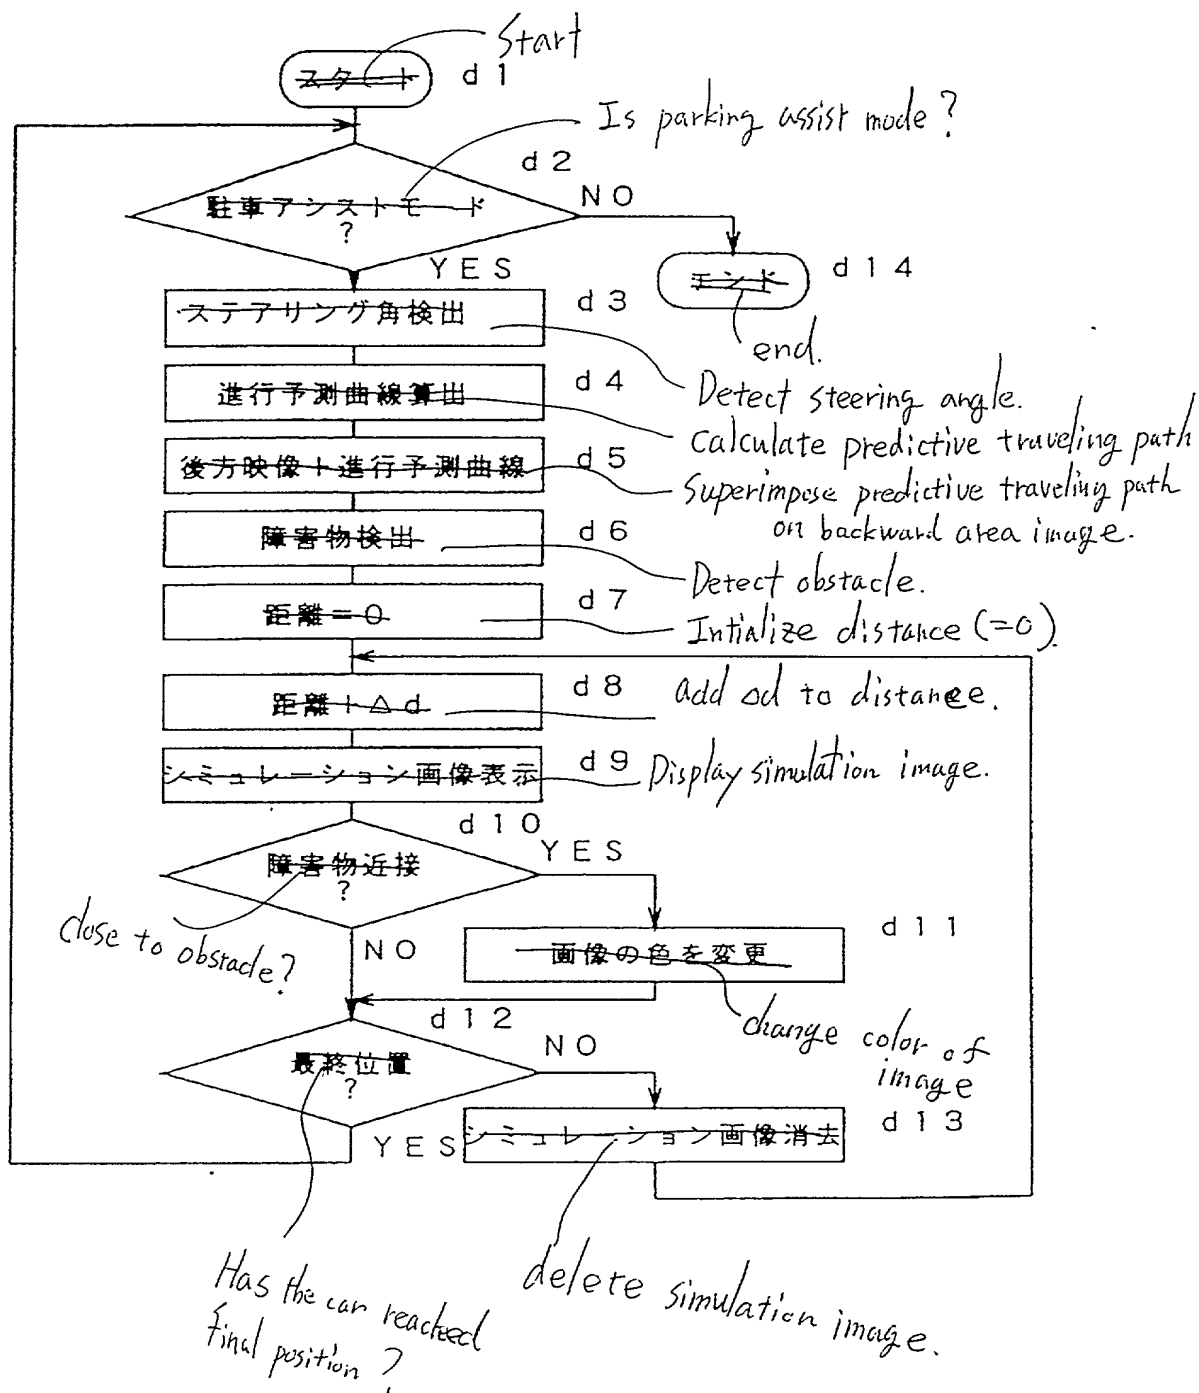 Start
スタート d1
Is parking assist mode?
d2
駐車アシストモード
?
NO
YES
エンド d14
end.
ステアリング角検出 d3
Detect steering angle.
進行予測曲線算出 d4
Calculate predictive traveling path
後方映像+進行予測曲線 d5
Superimpose predictive traveling path
on backward area image.
障害物検出 d6
Detect obstacle.
距離=0 d7
Intialize distance (=0).
距離+Δd d8
add Δd to distance.
シミュレーション画像表示 d9
Display simulation image.
d10
障害物近接
?
YES
close to obstacle?
NO
d11
画像の色を変更
change color of
image
d12
最終位置
?
NO
YES
d13
シミュレーション画像消去
Has the car reached
final position?
delete simulation image.